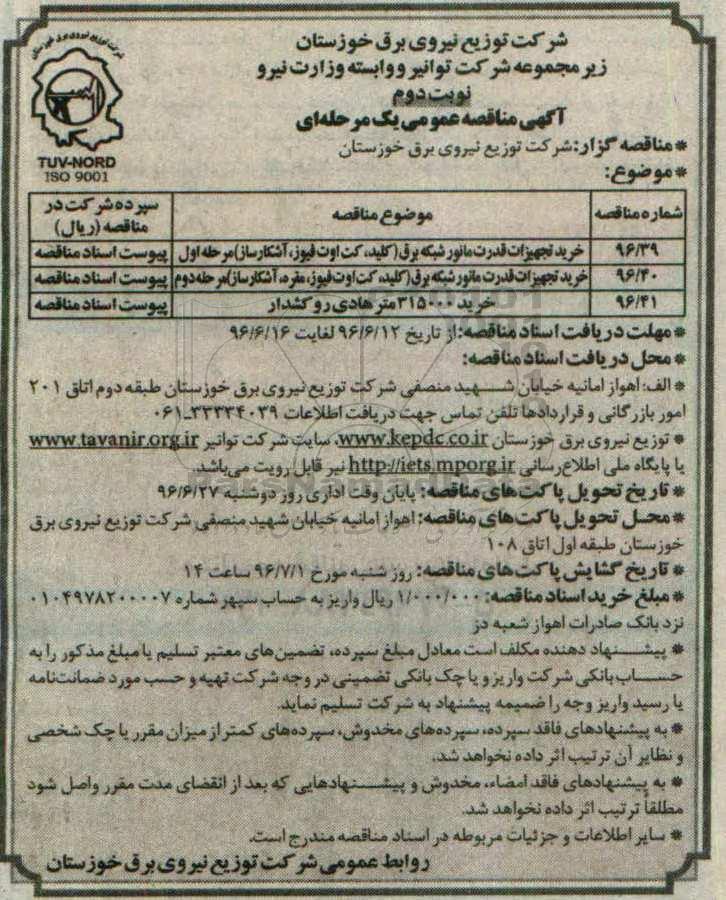 شرکت توزیع نیروی برق خوزستان
شرکت توزیع نیروی برق خوزستان
زیر مجموعه شرکت توانیر و وابسته وزارت نیرو
نوبت دوم
آگهی مناقصه عمومی یک مرحله‌ای
TUV-NORD
ISO 9001
* مناقصه گزار: شرکت توزیع نیروی برق خوزستان
* موضوع:
شماره مناقصه موضوع مناقصه سپرده شرکت در مناقصه (ریال)
۹۶/۳۹ خرید تجهیزات قدرت مانور شبکه برق (کلید، کت اوت فیوز، آشکارساز) مرحله اول پیوست اسناد مناقصه
۹۶/۴۰ خرید تجهیزات قدرت مانور شبکه برق (کلید، کت اوت فیوز، مقره، آشکارساز) مرحله دوم پیوست اسناد مناقصه
۹۶/۴۱ خرید ۳۱۵۰۰۰ متر هادی روکشدار پیوست اسناد مناقصه
* مهلت دریافت اسناد مناقصه: از تاریخ ۹۶/۶/۱۲ لغایت ۹۶/۶/۱۶
* محل دریافت اسناد مناقصه:
* الف: اهواز امانیه خیابان شهید منصفی شرکت توزیع نیروی برق خوزستان طبقه دوم اتاق ۲۰۱
امور بازرگانی و قراردادها تلفن تماس جهت دریافت اطلاعات ۳۳۳۳۴۰۳۹-۰۶۱
* توزیع نیروی برق خوزستان www.kepdc.co.ir، سایت شرکت توانیر www.tavanir.org.ir
یا پایگاه ملی اطلاع‌رسانی http://iets.mporg.ir نیز قابل رویت می‌باشد.
* تاریخ تحویل پاکت‌های مناقصه: پایان وقت اداری روز دوشنبه ۹۶/۶/۲۷
* محل تحویل پاکت‌های مناقصه: اهواز امانیه خیابان شهید منصفی شرکت توزیع نیروی برق
خوزستان طبقه اول اتاق ۱۰۸
* تاریخ گشایش پاکت‌های مناقصه: روز شنبه مورخ ۹۶/۷/۱ ساعت ۱۴
* مبلغ خرید اسناد مناقصه: ۱/۰۰۰/۰۰۰ ریال واریز به حساب سپهر شماره ۰۱۰۴۹۷۸۲۰۰۰۰۷
نزد بانک صادرات اهواز شعبه دز
* پیشنهاد دهنده مکلف است معادل مبلغ سپرده، تضمین‌های معتبر تسلیم یا مبلغ مذکور را به
حساب بانکی شرکت واریز و یا چک بانکی تضمینی در وجه شرکت تهیه و حسب مورد ضمانت‌نامه
یا رسید واریز وجه را ضمیمه پیشنهاد به شرکت تسلیم نماید.
* به پیشنهادهای فاقد سپرده، سپرده‌های مخدوش، سپرده‌های کمتر از میزان مقرر یا چک شخصی
و نظایر آن ترتیب اثر داده نخواهد شد.
* به پیشنهادهای فاقد امضاء، مخدوش و پیشنهادهایی که بعد از انقضای مدت مقرر واصل شود
مطلقاً ترتیب اثر داده نخواهد شد.
* سایر اطلاعات و جزئیات مربوطه در اسناد مناقصه مندرج است.
روابط عمومی شرکت توزیع نیروی برق خوزستان